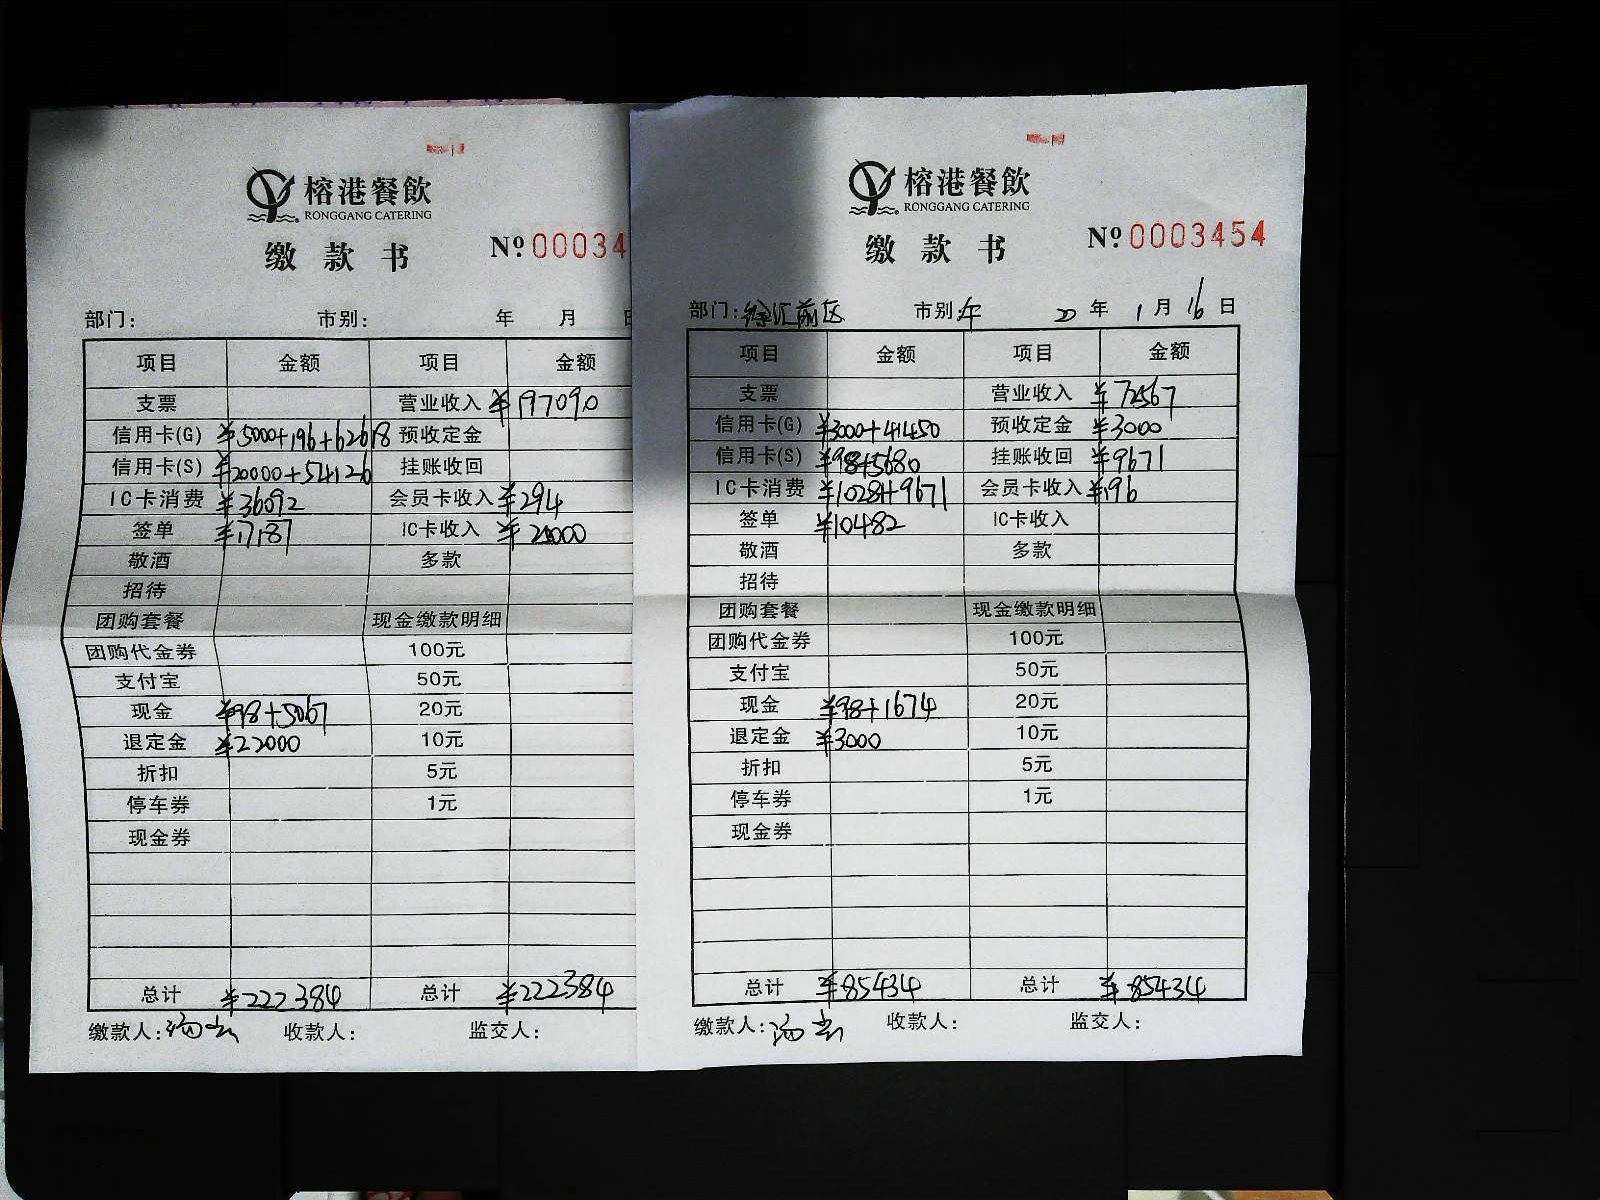 榕港餐飲
RONGGANG CATERING
缴款书 Nº 00034
部门： 市别： 年 月
项目 金额 项目 金额
支票 营业收入 ¥197090
信用卡(G) ¥5000+196+62618 预收定金
信用卡(S) ¥20000+54126 挂账收回
IC卡消费 ¥36092 会员卡收入 ¥294
签单 ¥17187 IC卡收入 ¥25000
敬酒 多款
招待
团购套餐 现金缴款明细
团购代金券 100元
支付宝 50元
现金 ¥98+5067 20元
退定金 ¥22000 10元
折扣 5元
停车券 1元
现金券
总计 ¥222384 总计 ¥222384
缴款人： 收款人： 监交人：
榕港餐飲
RONGGANG CATERING
缴款书 Nº 0003454
部门：徐汇前区 市别：午 20年1月16日
项目 金额 项目 金额
支票 营业收入 ¥72567
信用卡(G) ¥3000+41450 预收定金 ¥3000
信用卡(S) ¥98+5680 挂账收回 ¥9671
IC卡消费 ¥10281+9671 会员卡收入 ¥196
签单 ¥10482 IC卡收入
敬酒 多款
招待
团购套餐 现金缴款明细
团购代金券 100元
支付宝 50元
现金 ¥98+1674 20元
退定金 ¥3000 10元
折扣 5元
停车券 1元
现金券
总计 ¥85434 总计 ¥85434
缴款人： 收款人： 监交人：